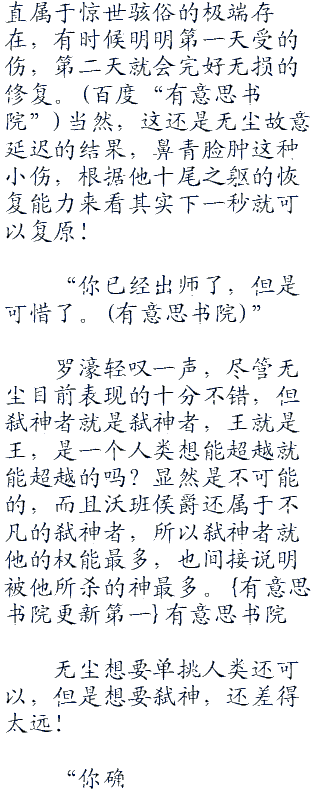 直属于惊世骇俗的极端存
在，有时候明明第一天受的
伤，第二天就会完好无损的
修复。(百度“有意思书
院”)当然，这还是无尘故意
延迟的结果，鼻青脸肿这种
小伤，根据他十尾之躯的恢
复能力来看其实下一秒就可
以复原！
“你已经出师了，但是
可惜了。(有意思书院)”
罗濠轻叹一声，尽管无
尘目前表现的十分不错，但
弑神者就是弑神者，王就是
王，是一个人类想能超越就
能超越的吗？显然是不可能
的，而且沃班侯爵还属于不
凡的弑神者，所以弑神者就
他的权能最多，也间接说明
被他所杀的神最多。{有意思
书院更新第一}有意思书院
无尘想要单挑人类还可
以，但是想要弑神，还差得
太远！
“你确